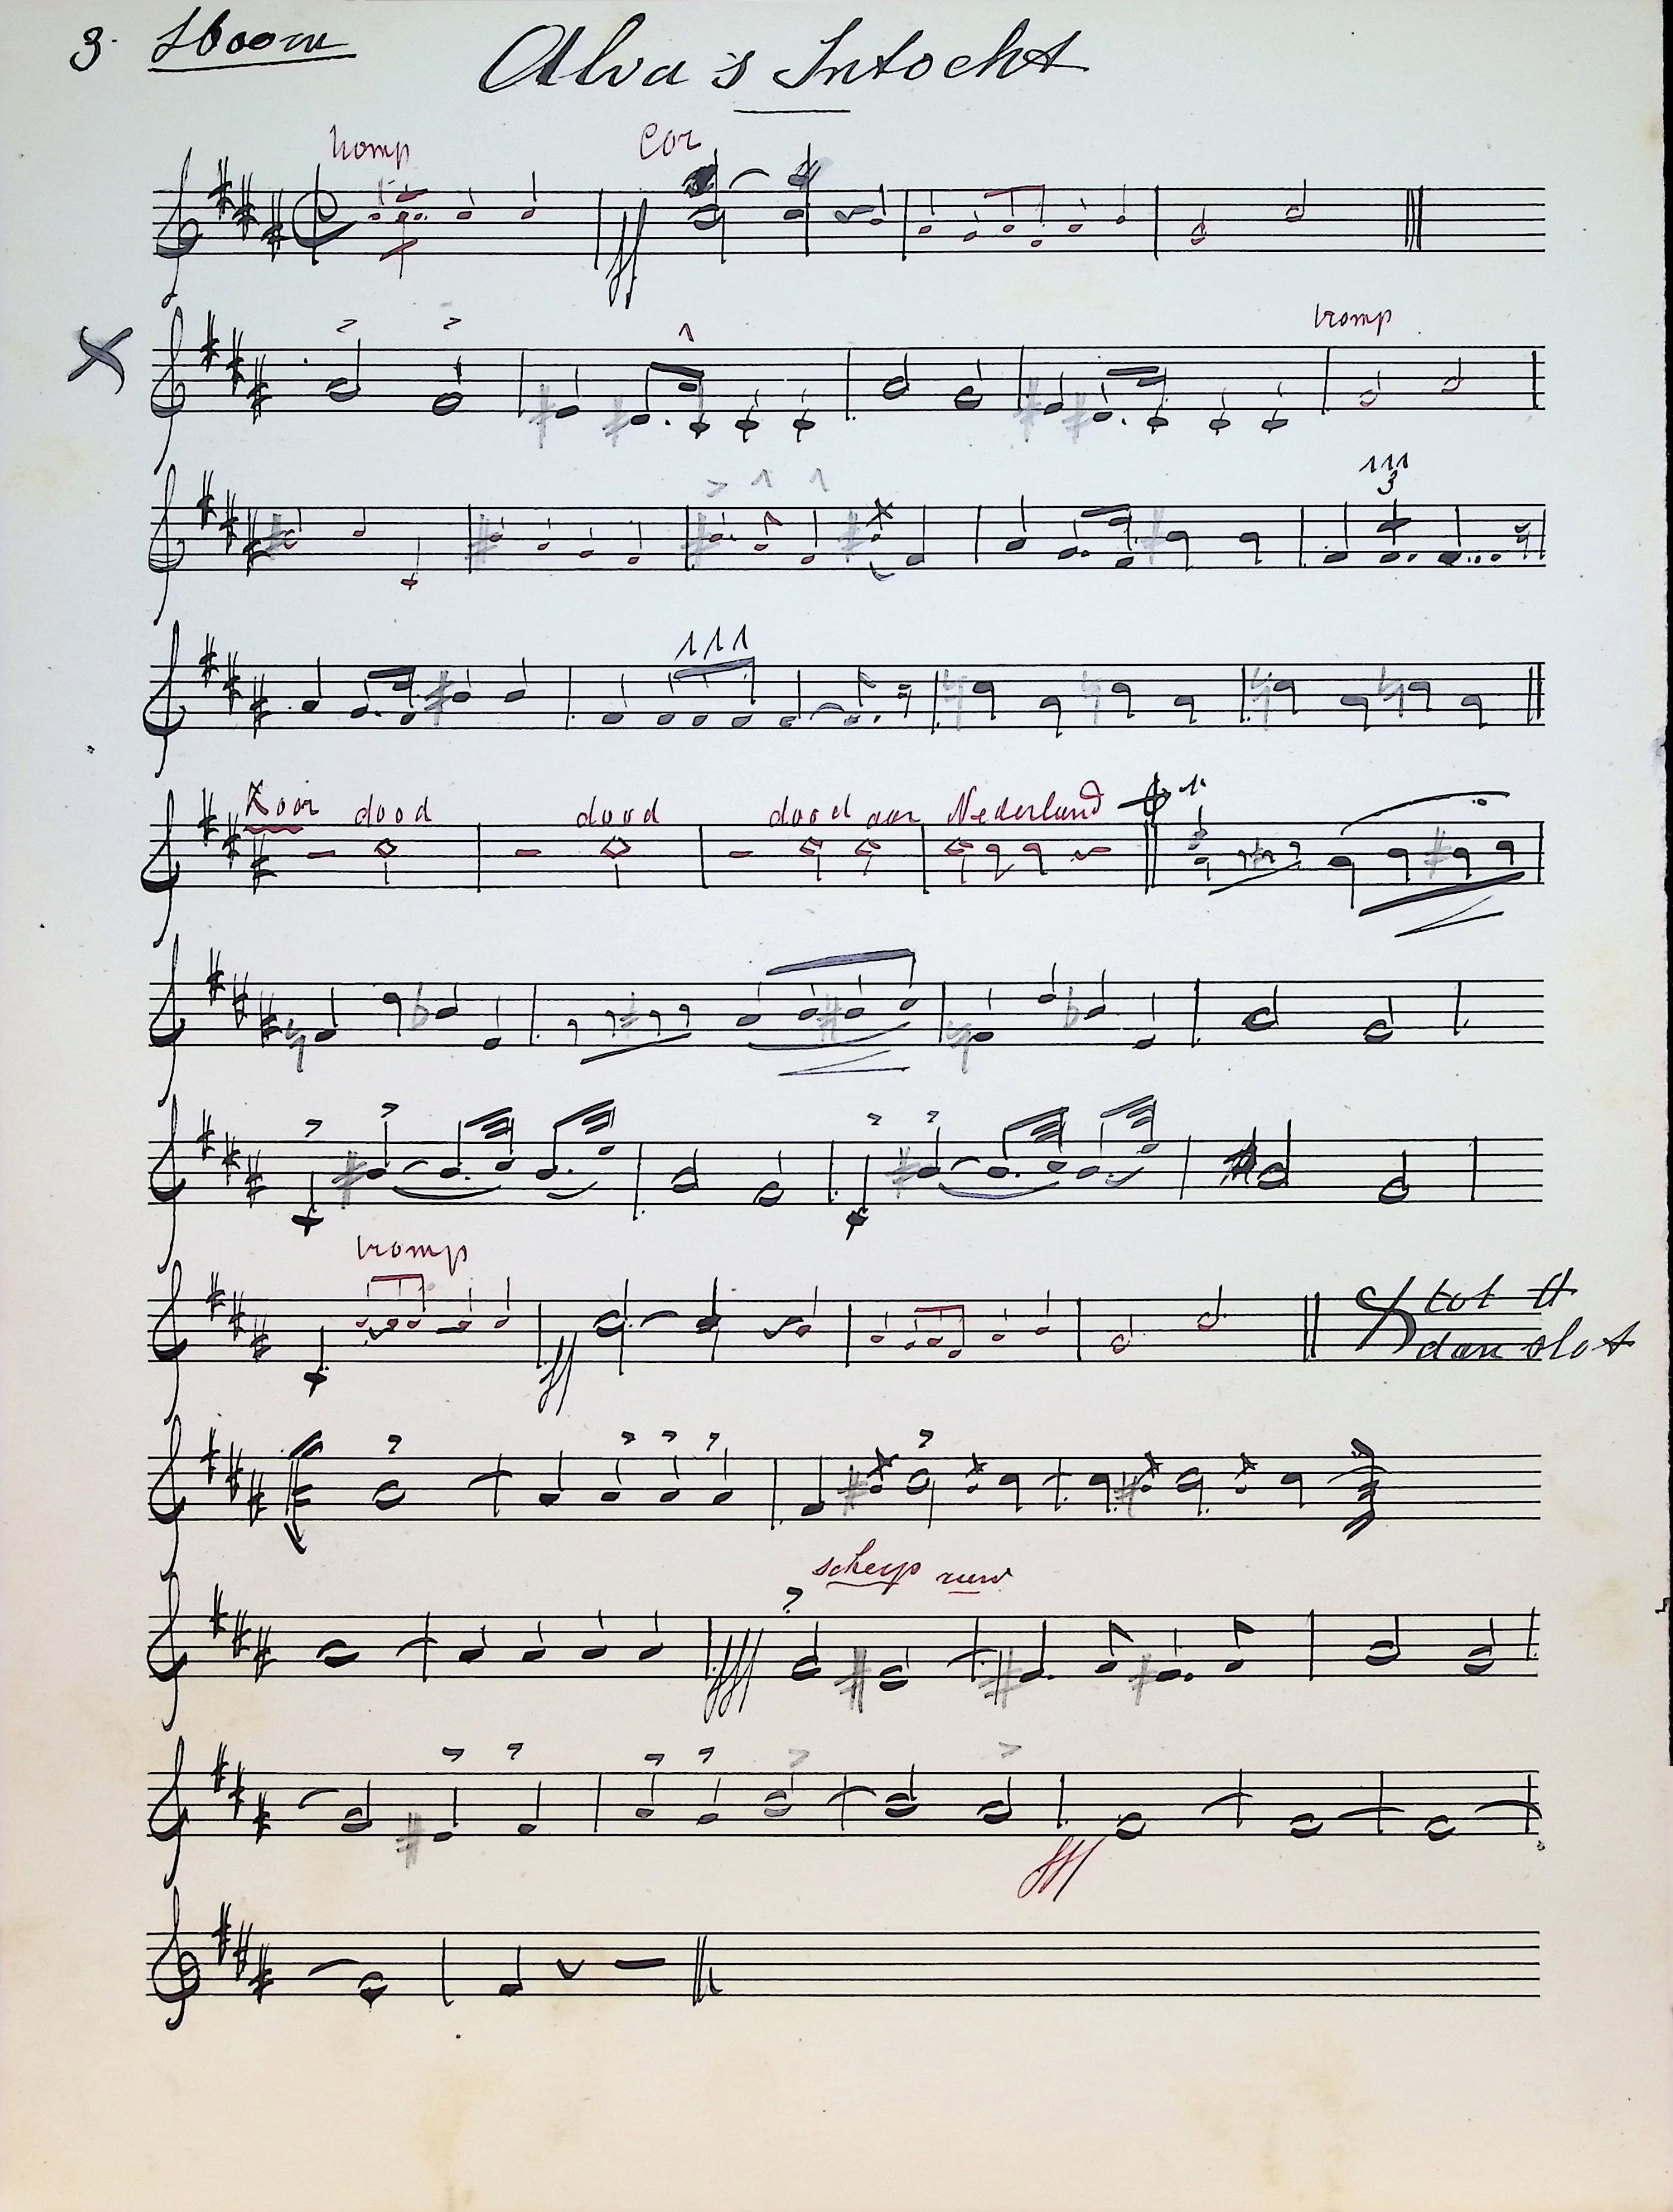 3. Hoorn
Alva's Intocht
tromp Cor
ff
tromp
3
Koor dood dood dood aan Nederland 1.
tromp
ff
tot
dan slot
scherp ruw
fff
fff